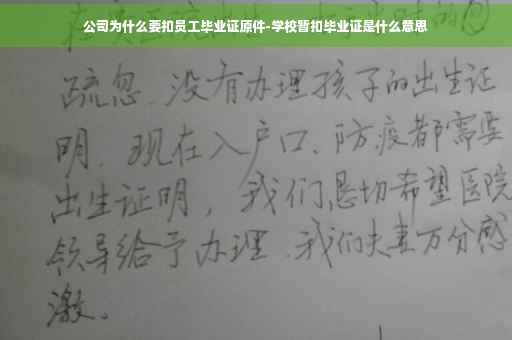 公司为什么要扣员工毕业证原件-学校暂扣毕业证是什么意思
疏忽.没有办理孩子的出生证
明.现在入户口、防疫都需要
出生证明,我们恳切希望医院
领导给予办理.我们夫妻万分感
激。